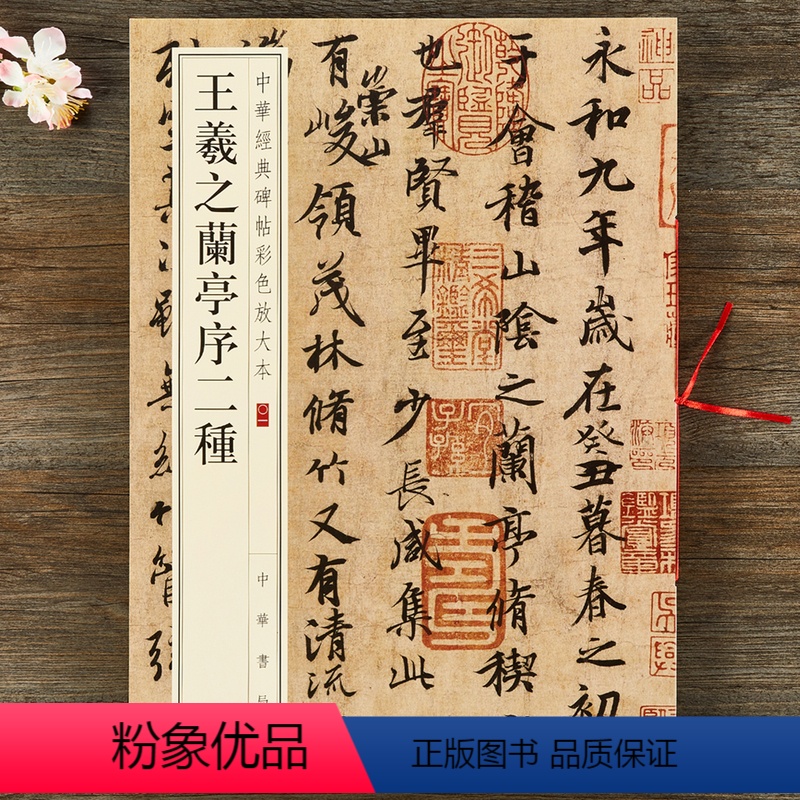 神品
永和九年歲在癸丑暮春之初
于會稽山陰之蘭亭脩稧
也羣賢畢至少長咸集此
有崇山峻領茂林脩竹又有清流
中華經典碑帖彩色放大本 〇一
中華書局
王羲之蘭亭序二種
粉象优品
正版图书 品质保证